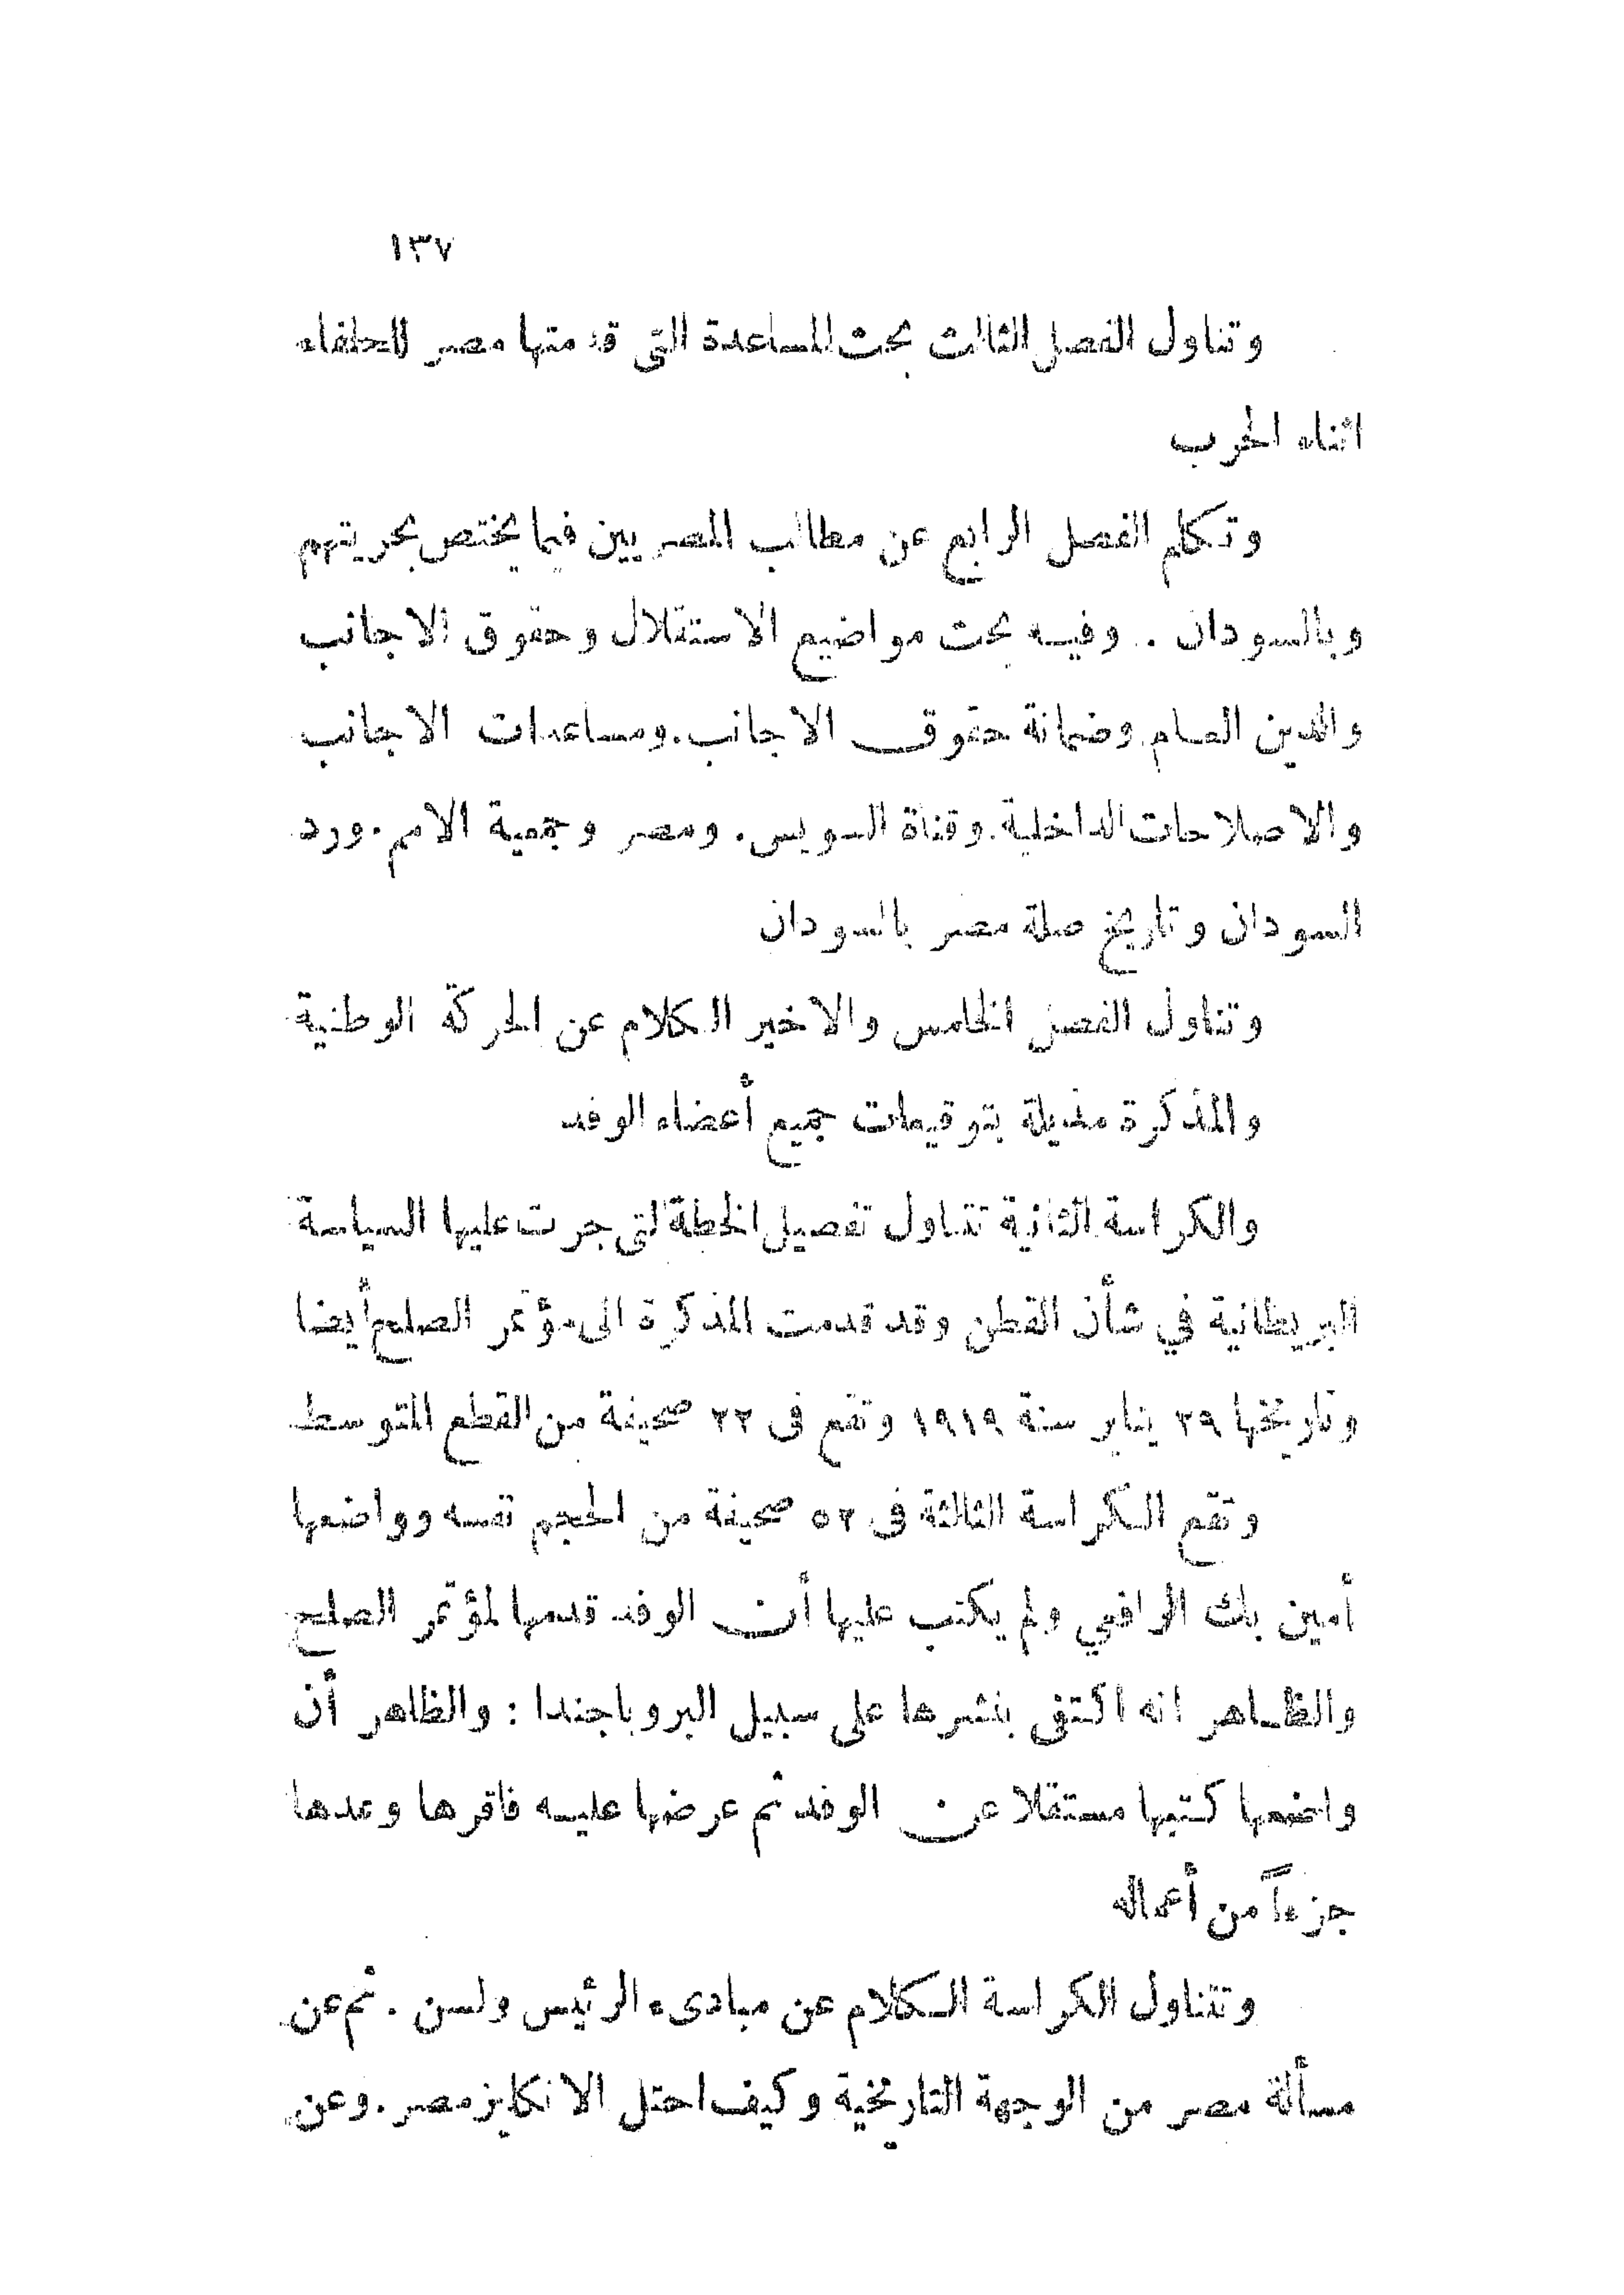 ١٣٧
وتناول الفصل الثالث بحث المساعدة التى قدمتها مصر للحلفاء
اثناء الحرب
وتكلم الفصل الرابع عن مطالب المصريين فيما يختص بحريتهم
وبالسودان . وفيه بحث مواضيع الاستقلال وحقوق الاجانب
والدين العام وضمانة حقوق الاجانب.ومساعدات الاجانب
والاصلاحات الداخلية.وقناة السويس. ومصر وجمعية الامم.ورد
السودان وتاريخ صلة مصر بالسودان
وتناول الفصل الخامس والاخير الكلام عن الحركة الوطنية
والمذكرة مذيلة بتوقيعات جميع أعضاء الوفد
والكراسة الثانية تتناول تفصيل الخطة لتى جرت عليها السياسة
البريطانية في شأن القطن وقد قدمت المذكرة الى مؤتمر الصلح أيضا
وتاريخها ٢٩ يناير سنة ١٩١٩ وتقع فى ٢٢ صحيفة من القطع المتوسط
وتقع الكراسة الثالثة فى ٥٢ صحيفة من الحجم نفسه وواضعها
أمين بك الرافعي ولم يكتب عليها أن الوفد قدمها لمؤتمر الصلح
والظاهر انه اكتفى بنشرها على سبيل البروباجندا : والظاهر أن
واضعها كتبها مستقلا عن الوفد ثم عرضها عليه فاقرها وعدها
جزءاً من أعماله
وتتناول الكراسة الكلام عن مبادىء الرئيس ولسن . ثم عن
مسألة مصر من الوجهة التاريخية وكيف احتل الانكليز مصر.وعن